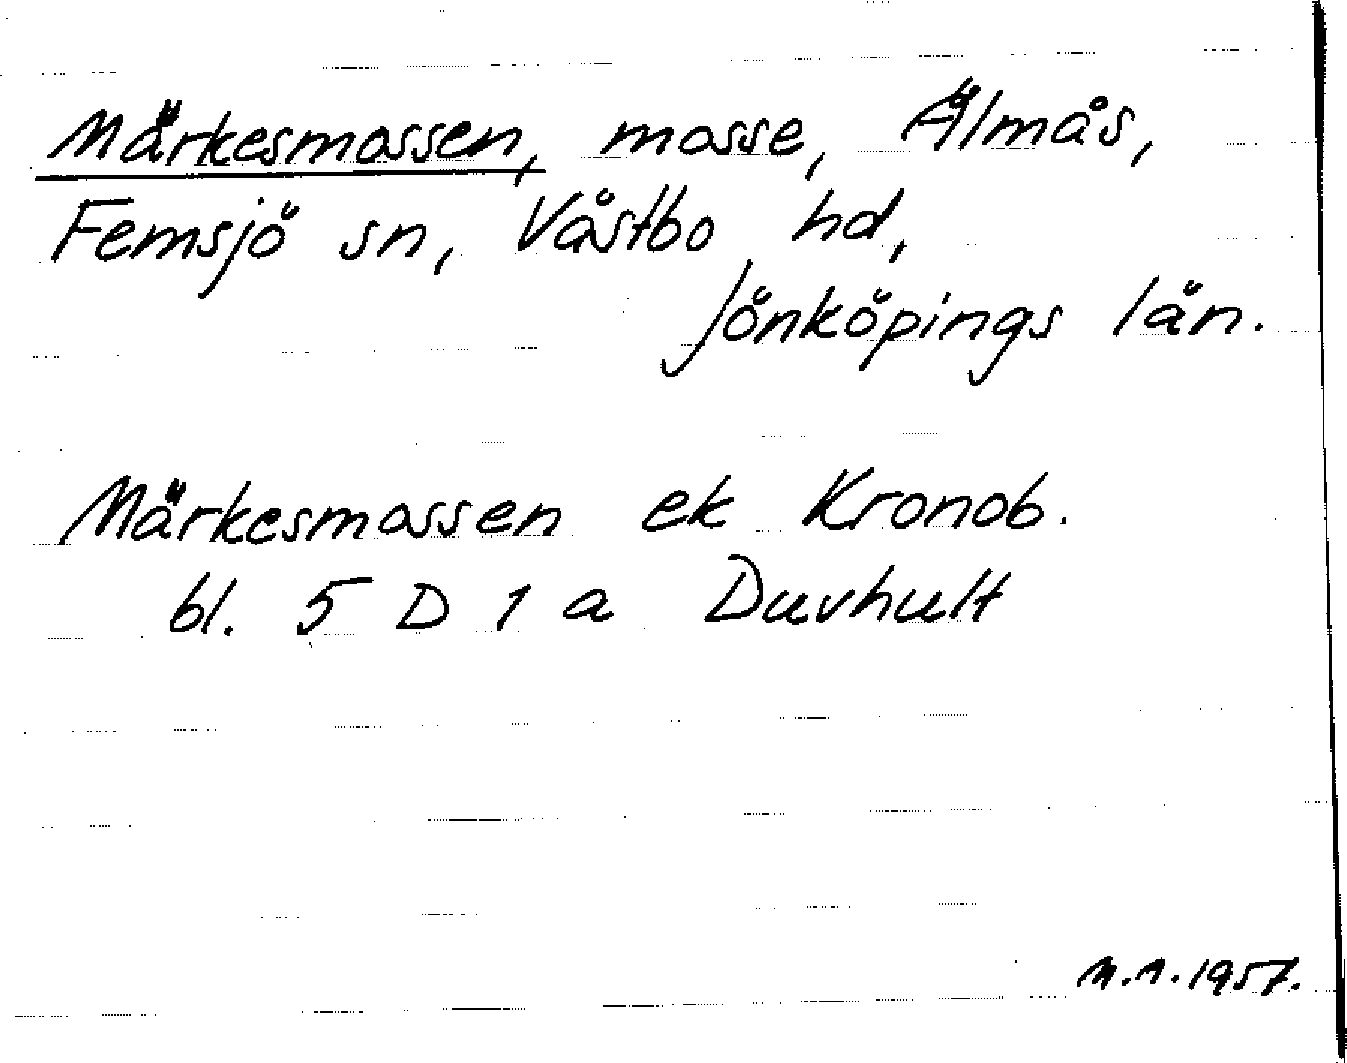 Märkesmossen, mosse, Älmås,
Femsjö sn, Västbo hd,
Jönköpings län.
Märkesmossen ek Kronob.
bl. 5 D 1 a Duvhult
M.A. 1957.